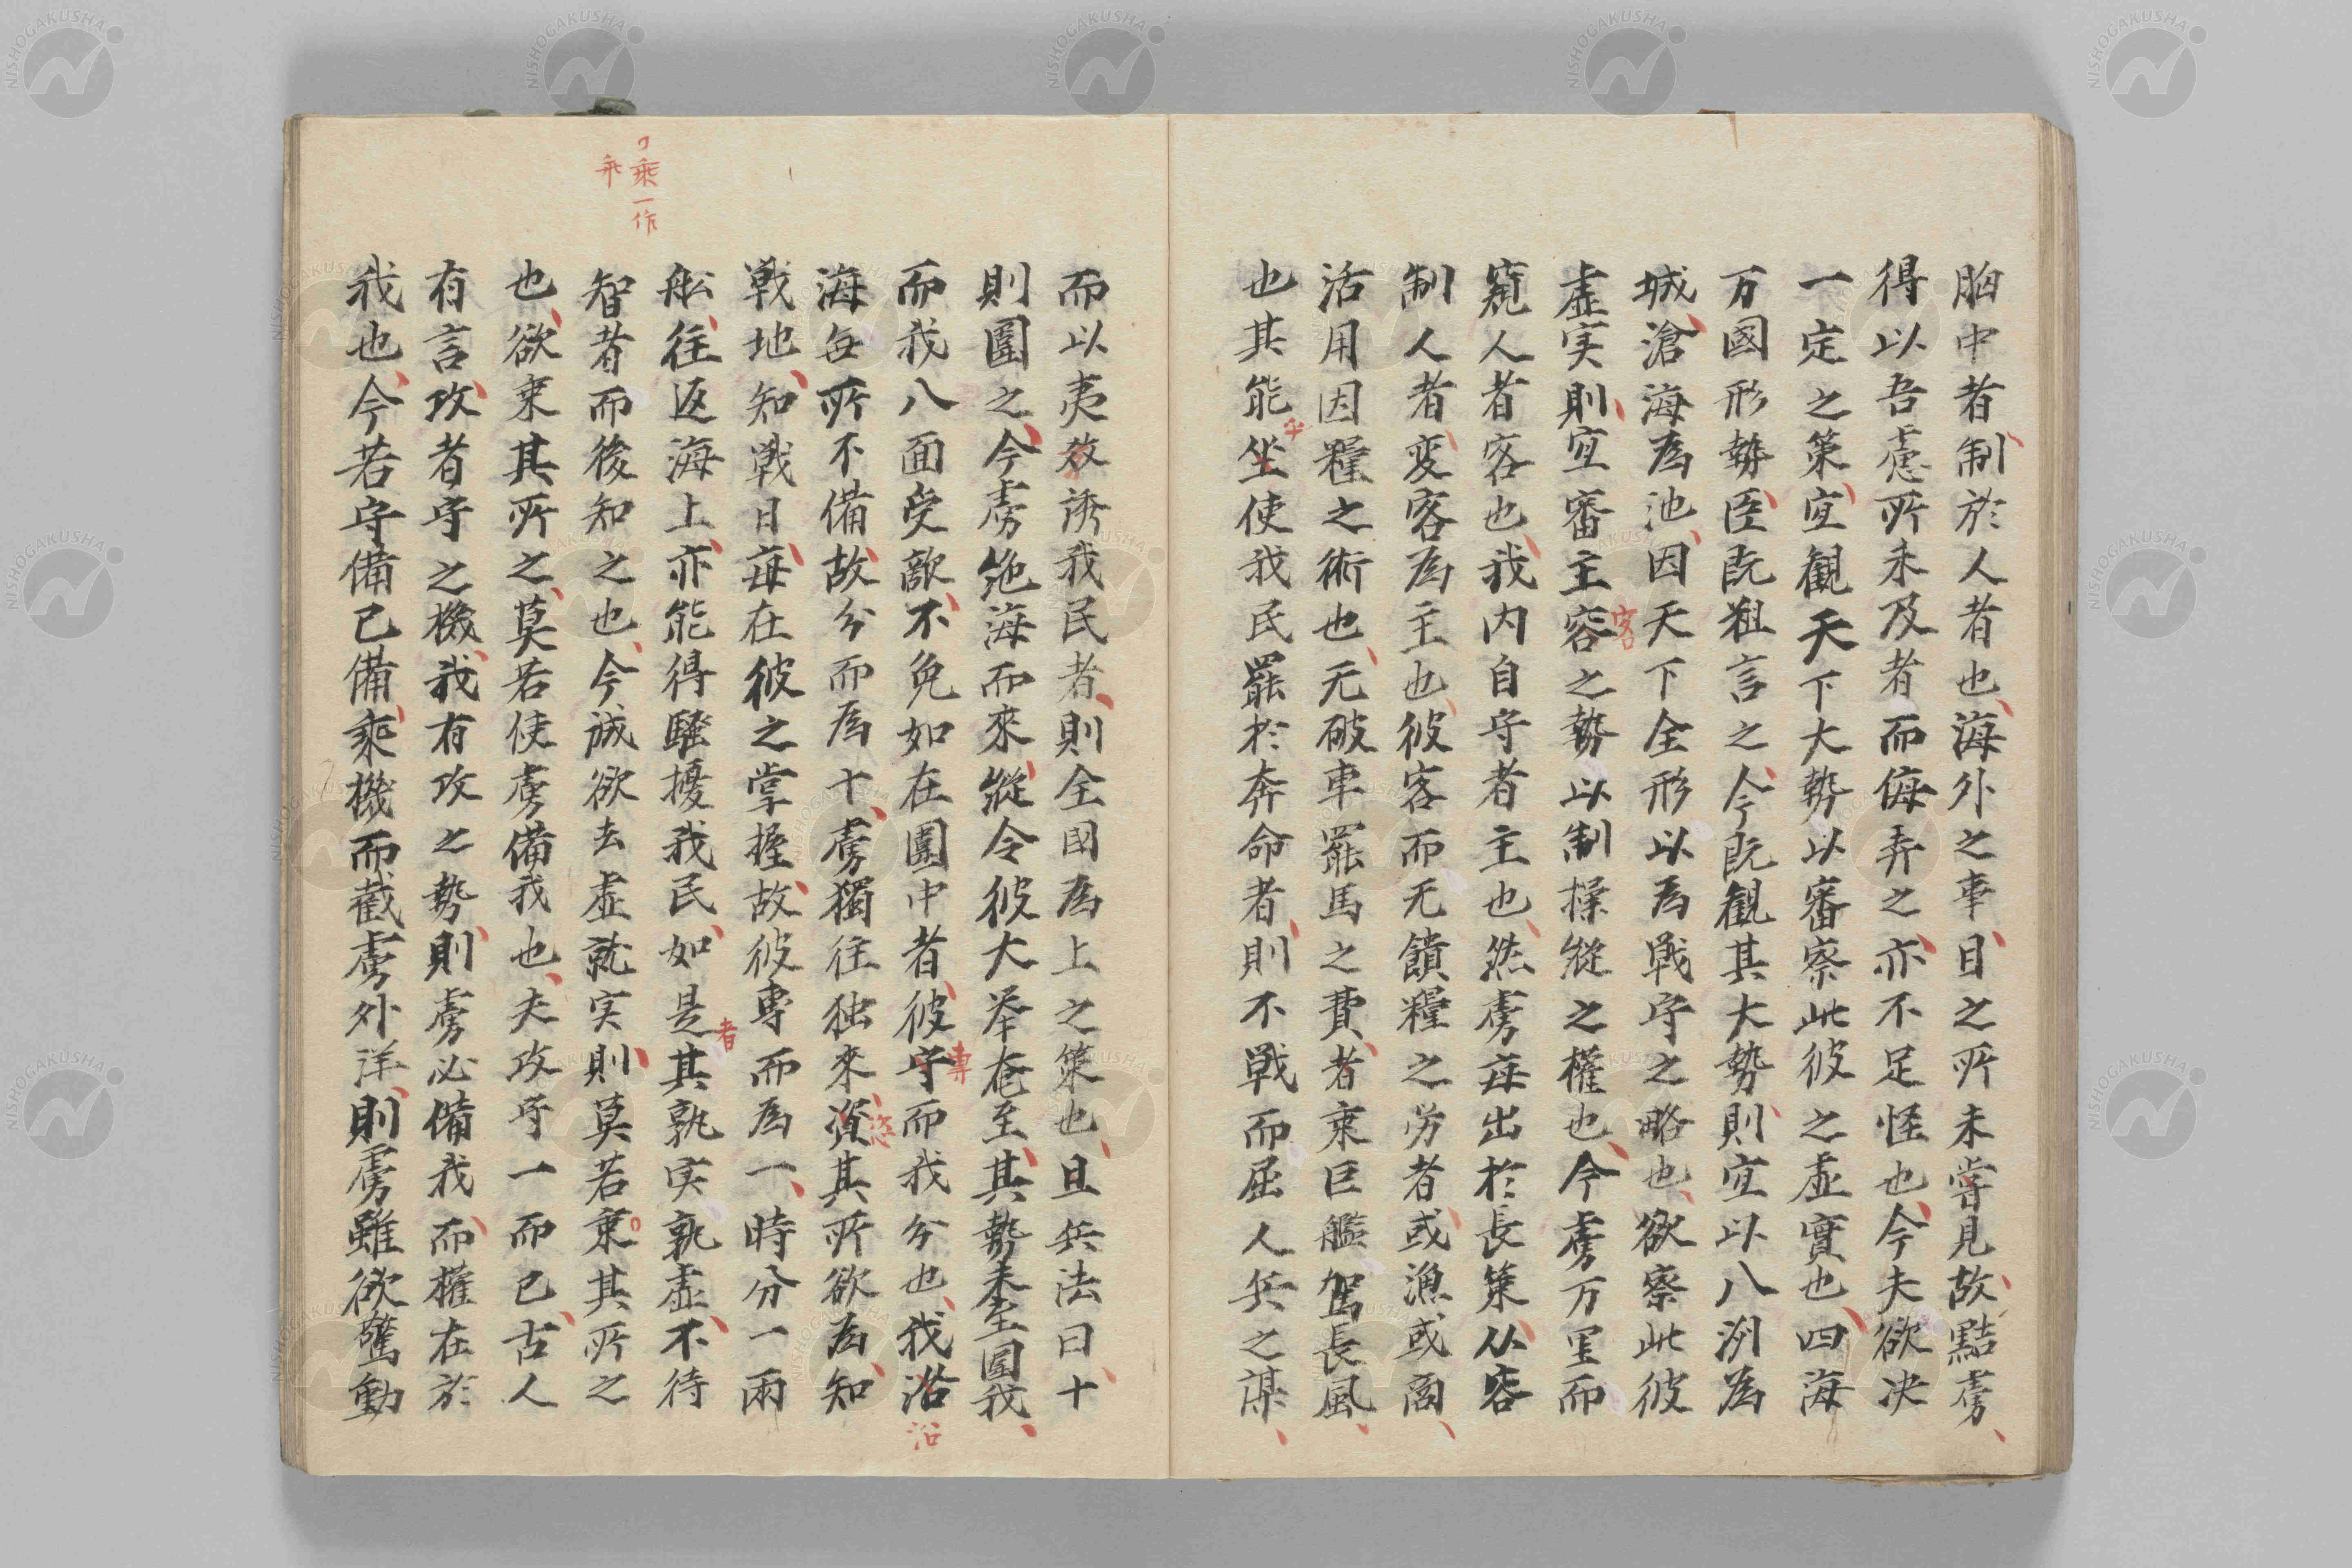 胸中者制於人者也海外之事目之所未嘗見故點虜
得以吾慮所未及者而侮弄之亦不足怪也今夫欲决
一定之策宜観天下大勢以審察此彼之虚實也四海
万國形勢臣既粗言之今既観其大勢則宜以八洲為
城滄海為池因天下全形以為戦守之略也欲察此彼
虚実則宜審主容之勢以制操縦之権也今虜万里而
客
窺人者客也我内自守者主也然虜毎出於長策从容
制人者変客為主也彼客而无饋糧之労者或漁或商
活用因糧之術也无破車罷馬之費者乗巨艦駕長風
也其能坐使我民罷於奔命者則不戦而屈人兵之謀
而以夷教誘我民者則全国為上之策也且兵法曰十
則圍之今虜絶海而來縦令彼大挙奄至其勢未至圍我
而我八面受敵不免如在圍中者彼守而我分也我沿
專
沿
海毎所不備故分而為十虜獨往独來資其所欲為知
恣
戦地知戦日毎在彼之掌握故彼専而為一時分一兩
舩往返海上亦能得騒擾我民如是其孰実孰虚不待
者
智者而後知之也今誠欲去虚就実則莫若乗其所之
乗一作
也欲乗其所之莫若使虜備我也夫攻守一而已古人
有言攻者守之機我有攻之勢則虜必備我而権在於
我也今若守備已備乗機而截虜外洋則虜雖欲驚動
NISHOGAKUSHA